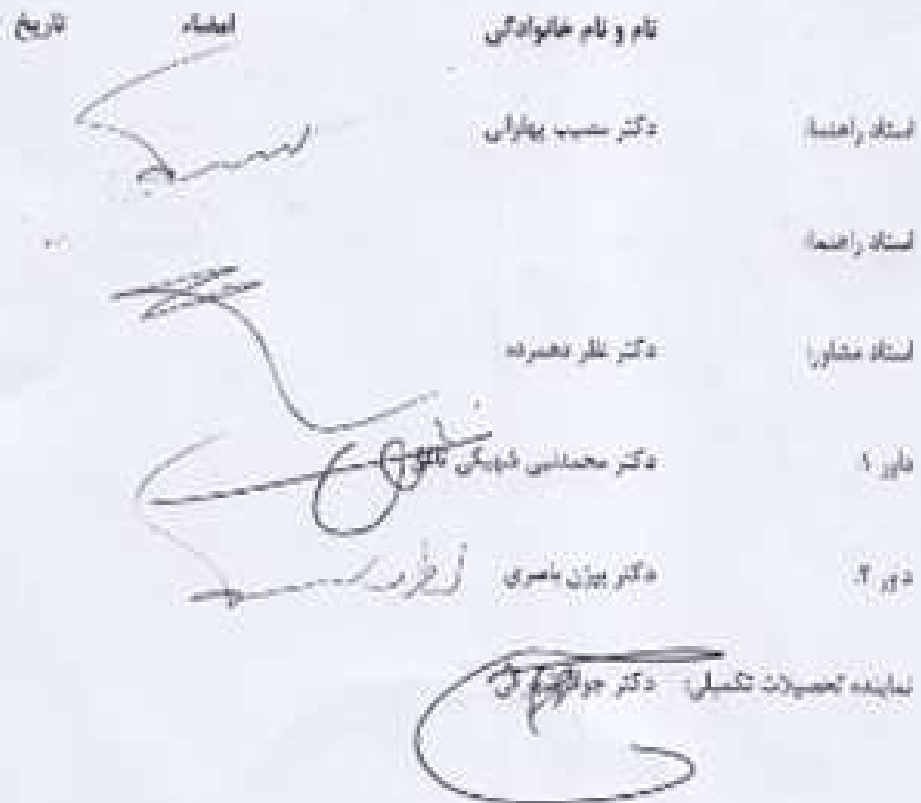 نام و نام خانوادگی امضاء تاریخ
استاد راهنما: دکتر مصیب پهلوانی
استاد راهنما:
استاد مشاور: دکتر نظر دهمرده
داور ۱: دکتر محمدنبی شهیکی تاش
داور ۲: دکتر بیژن باصری
نماینده تحصیلات تکمیلی: دکتر جواد